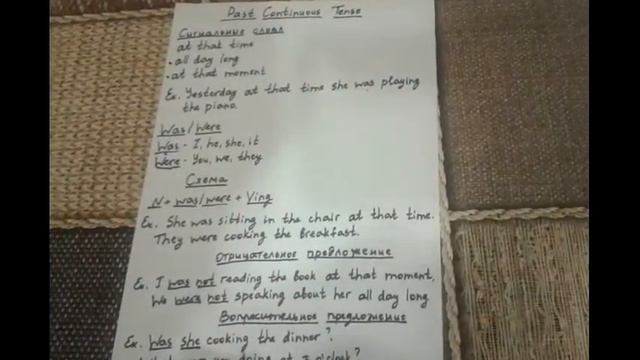 Past Continuous Tense
Сигнальные слова
at that time
• all day long
• at that moment
Ex. Yesterday at that time she was playing
the piano.
Was/Were
Was - I, he, she, it
Were - You, we, they
Схема
N + was/were + Ving
Ex. She was sitting in the chair at that time.
They were cooking the breakfast.
Отрицательное предложение
Ex. I was not reading the book at that moment.
We were not speaking about her all day long
Вопросительное предложение
Ex. Was she cooking the dinner?
doing at 7 o'clock?